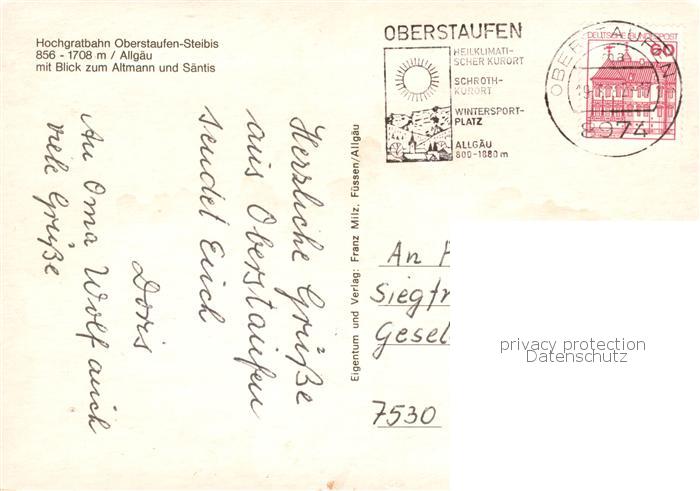 Hochgratbahn Oberstaufen-Steibis
856 - 1708 m / Allgäu
mit Blick zum Altmann und Säntis
OBERSTAUFEN
HEILKLIMATI-
SCHER KURORT
SCHROTH-
KURORT
WINTERSPORT-
PLATZ
ALLGÄU
800-1880 m
DEUTSCHE BUNDESPOST
60
OBERSTAUFEN
8974
Herzliche Grüße
aus Oberstaufen
sendet Euch
Doris
An Oma Wolf auch
viele Grüße
Eigentum und Verlag: Franz Milz, Füssen/Allgäu
An
Siegfr
Gesel
7530
privacy protection
Datenschutz